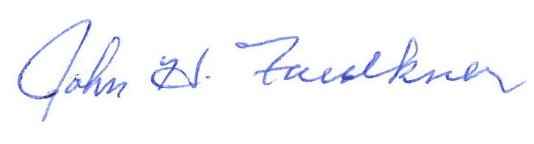 John H. Faulkner